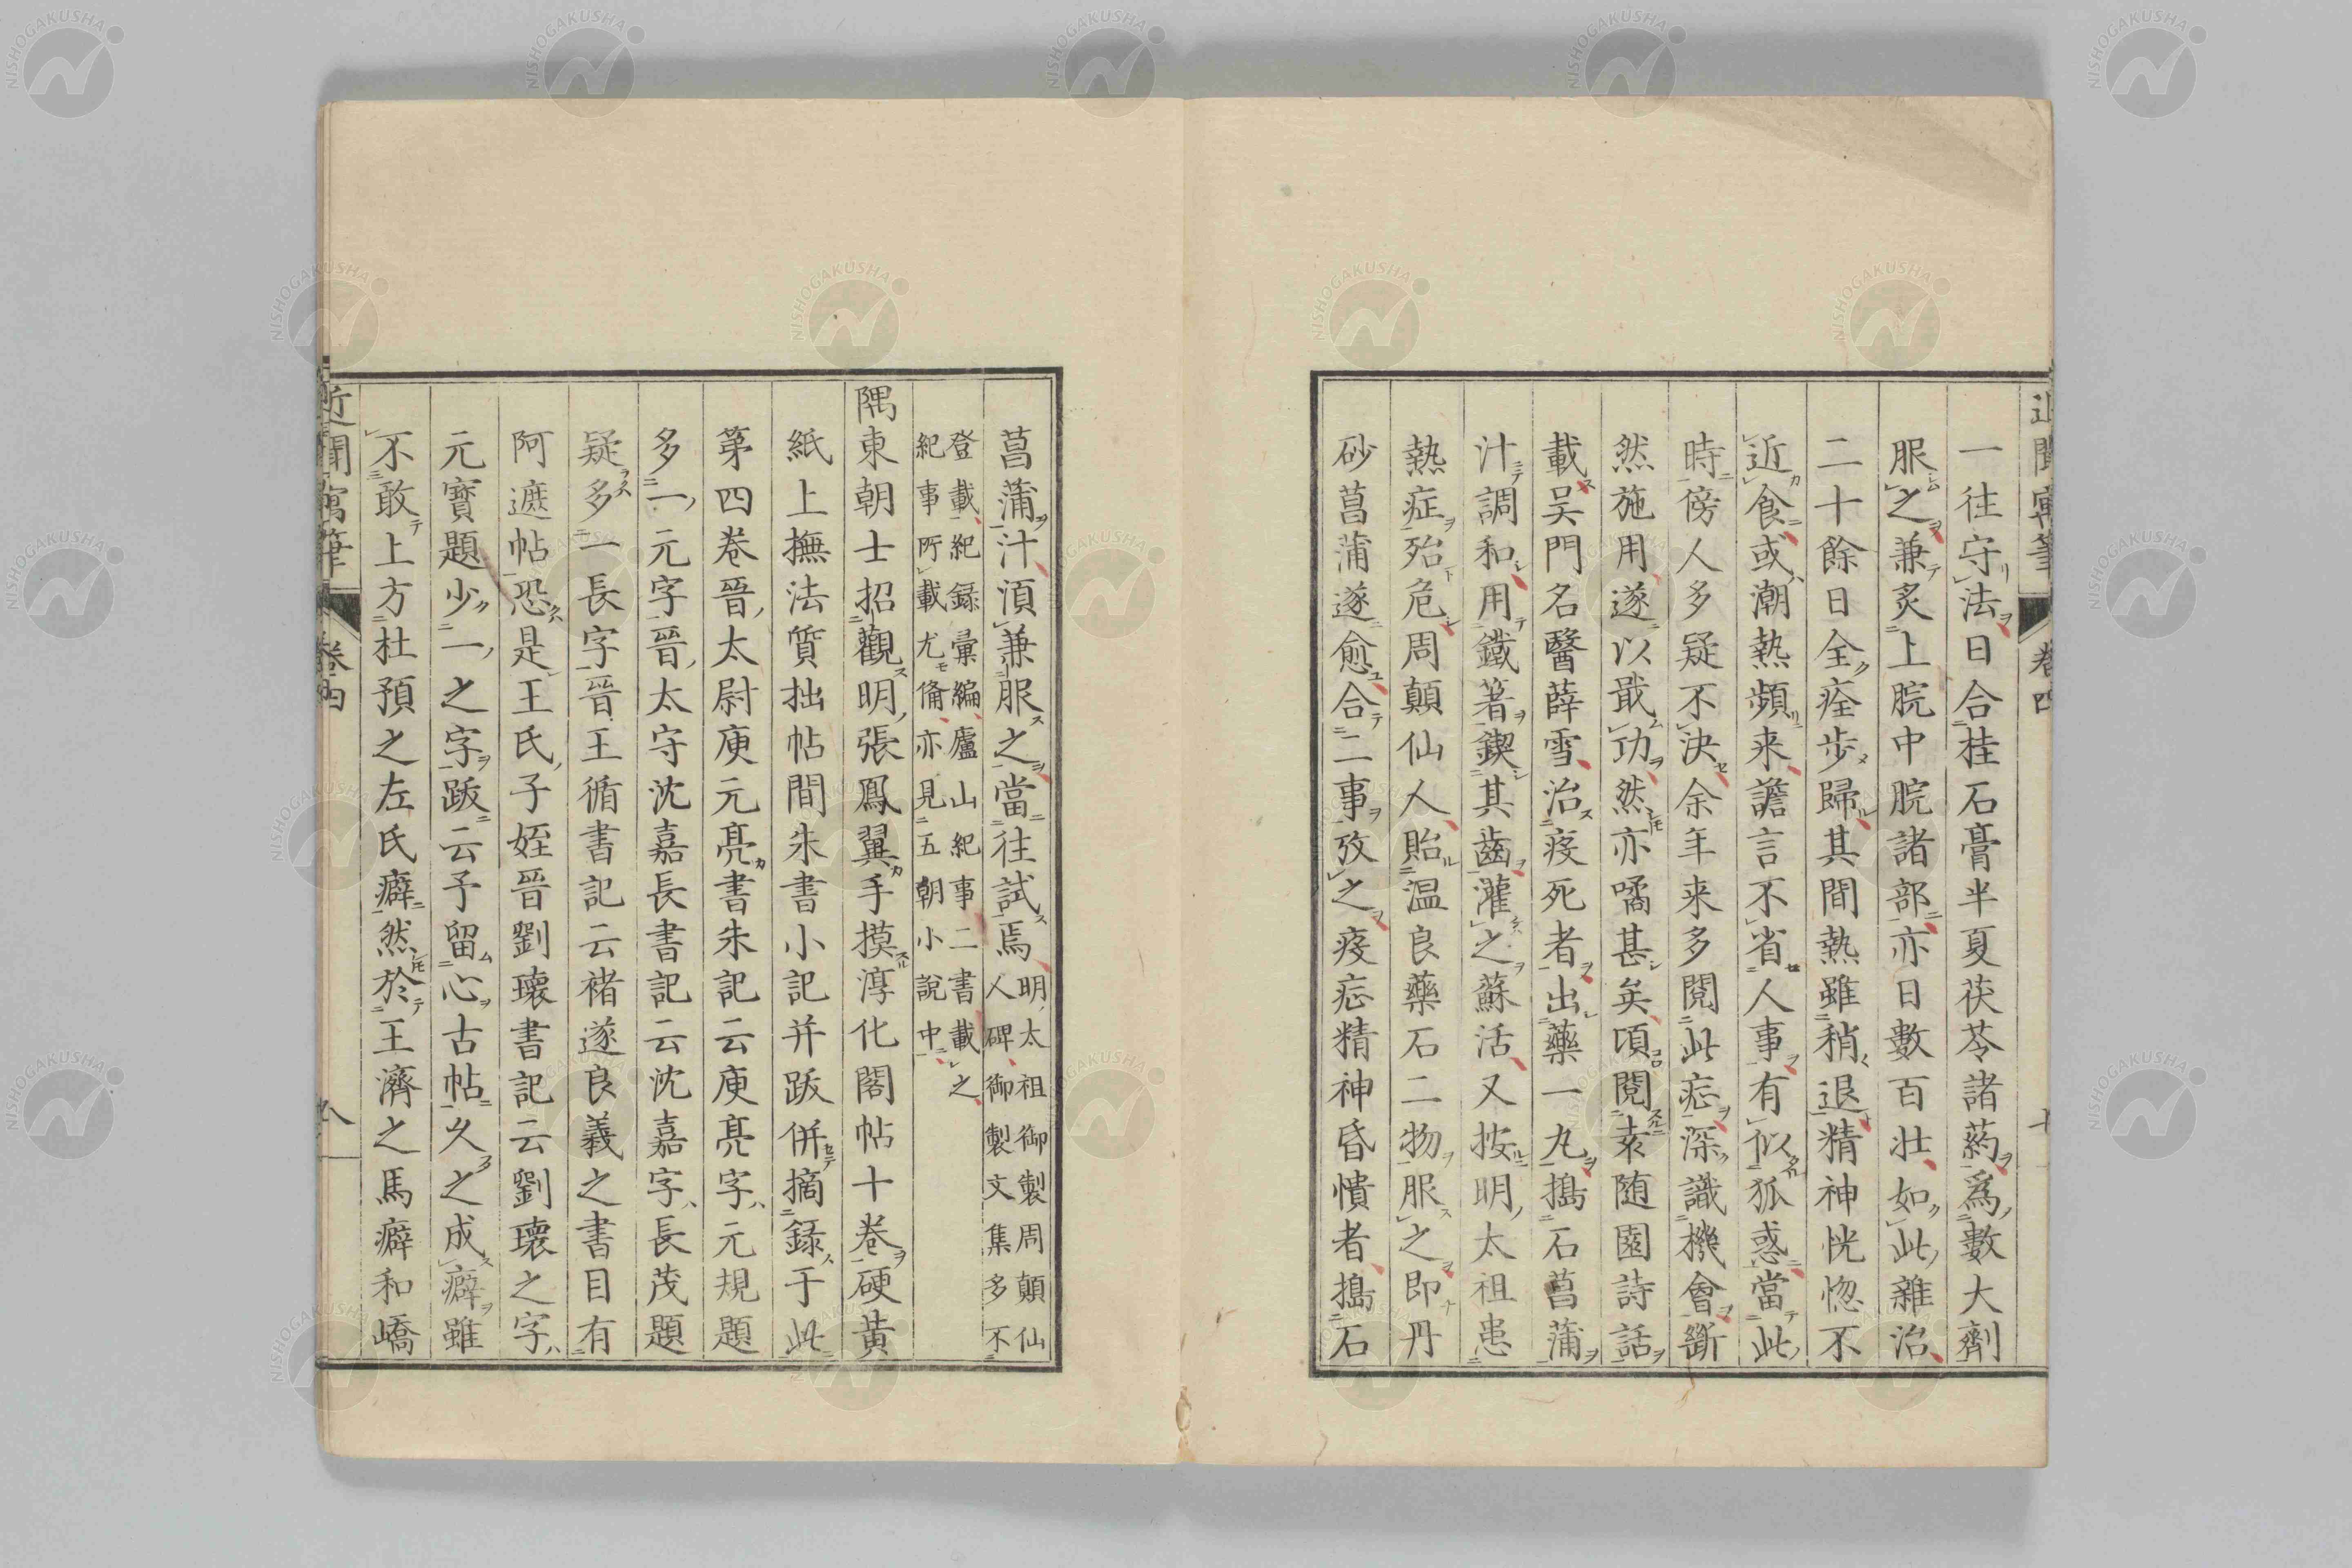 一往守法日合桂石膏半夏茯苓諸葯爲數大劑
服之兼炙上脘中脘諸部亦日數百壯如此雜治
二十餘日全痊步歸其間熱雖稍退精神恍惚不
近食或潮熱頻来譫言不省人事有似狐惑當此
時傍人多疑不決余年来多閲此症深識機會斷
然施用遂以戢功然亦噊甚矣頃閲袁随園詩話
載吴門名醫薛雪治疫死者出藥一丸搗石菖蒲
汁調和用鐵箸鍥其齒灌之蘇活又按明太祖患
熱症殆危周顛仙人貽温良藥石二物服之即丹
砂菖蒲遂愈合二事攷之疫症精神昏憒者搗石
菖蒲汁湏兼服之當往試焉明太祖御製周顛仙
人碑御製文集多不
登載紀録彙編廬山紀事二書載之
紀事所載尤備亦見五朝小說中
隅東朝士招觀明張鳳翼手摸淳化閣帖十卷硬黄
紙上撫法質拙帖間朱書小記并跋併摘録于此
第四卷晉太尉庾元亮書朱記云庾亮字元規題
多一元字晉太守沈嘉長書記云沈嘉字長茂題
疑多一長字晉王循書記云褚遂良義之書目有
阿遮帖恐是王氏子姪晉劉瓌書記云劉瓌之字
元寳題少一之字跋云予留心古帖久之成癖雖
不敢上方杜預之左氏癖然於王濟之馬癖和嶠
近聞寓筆
卷四
八
NISHOGAKUSHA